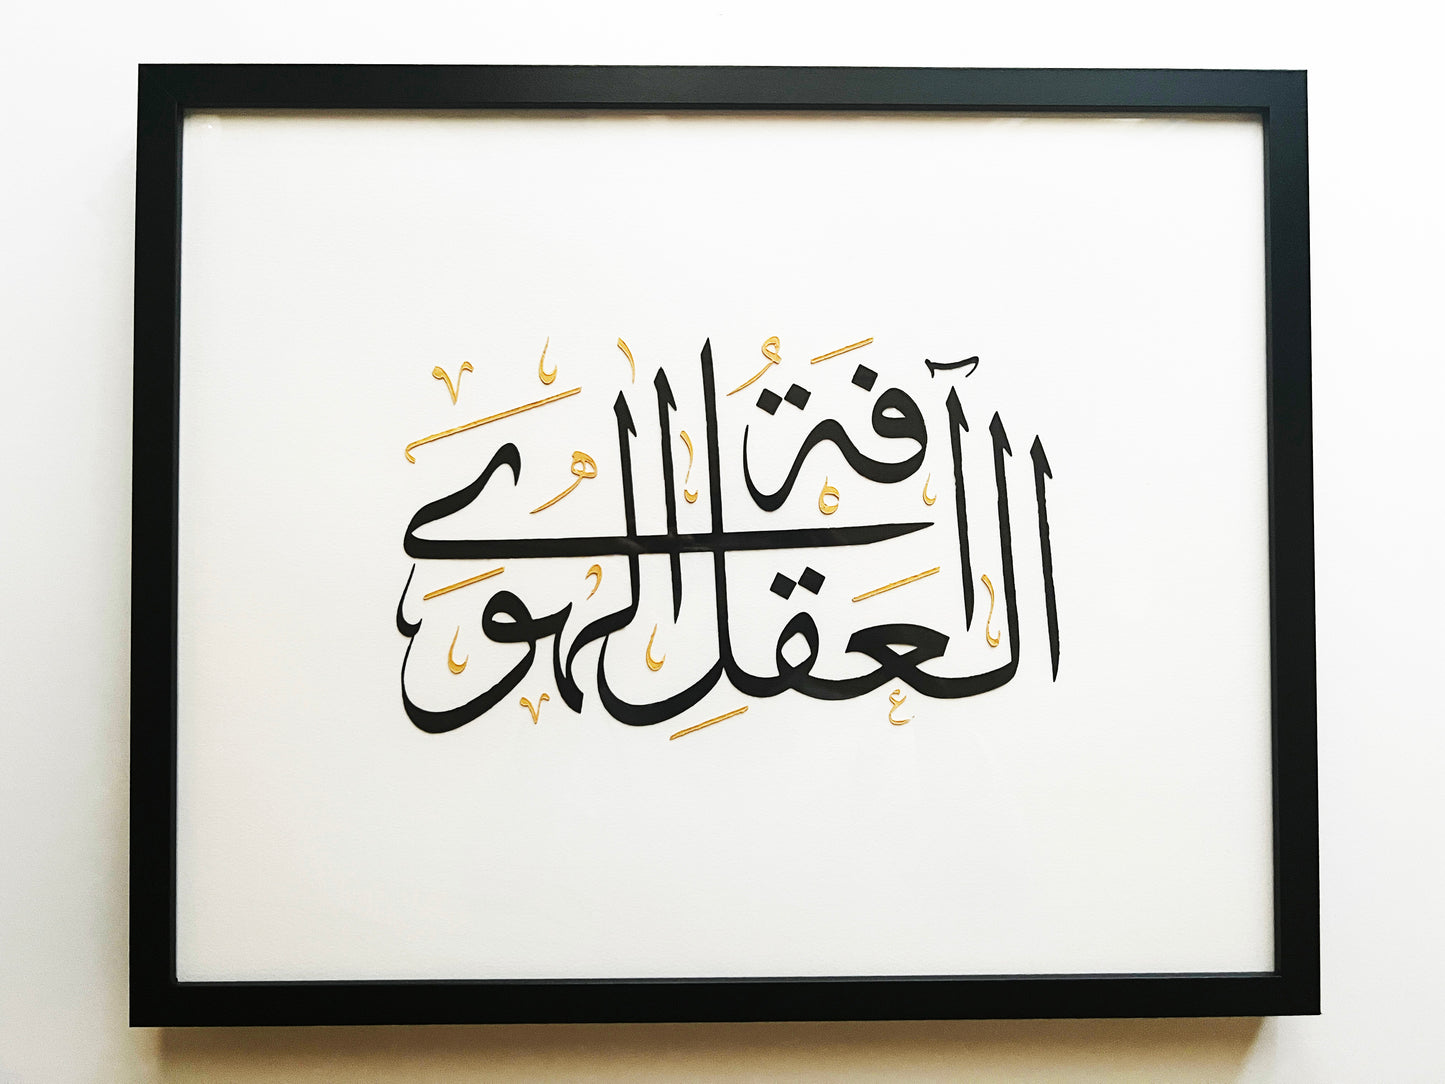 آفَةُ العَقلِ الهَوُى